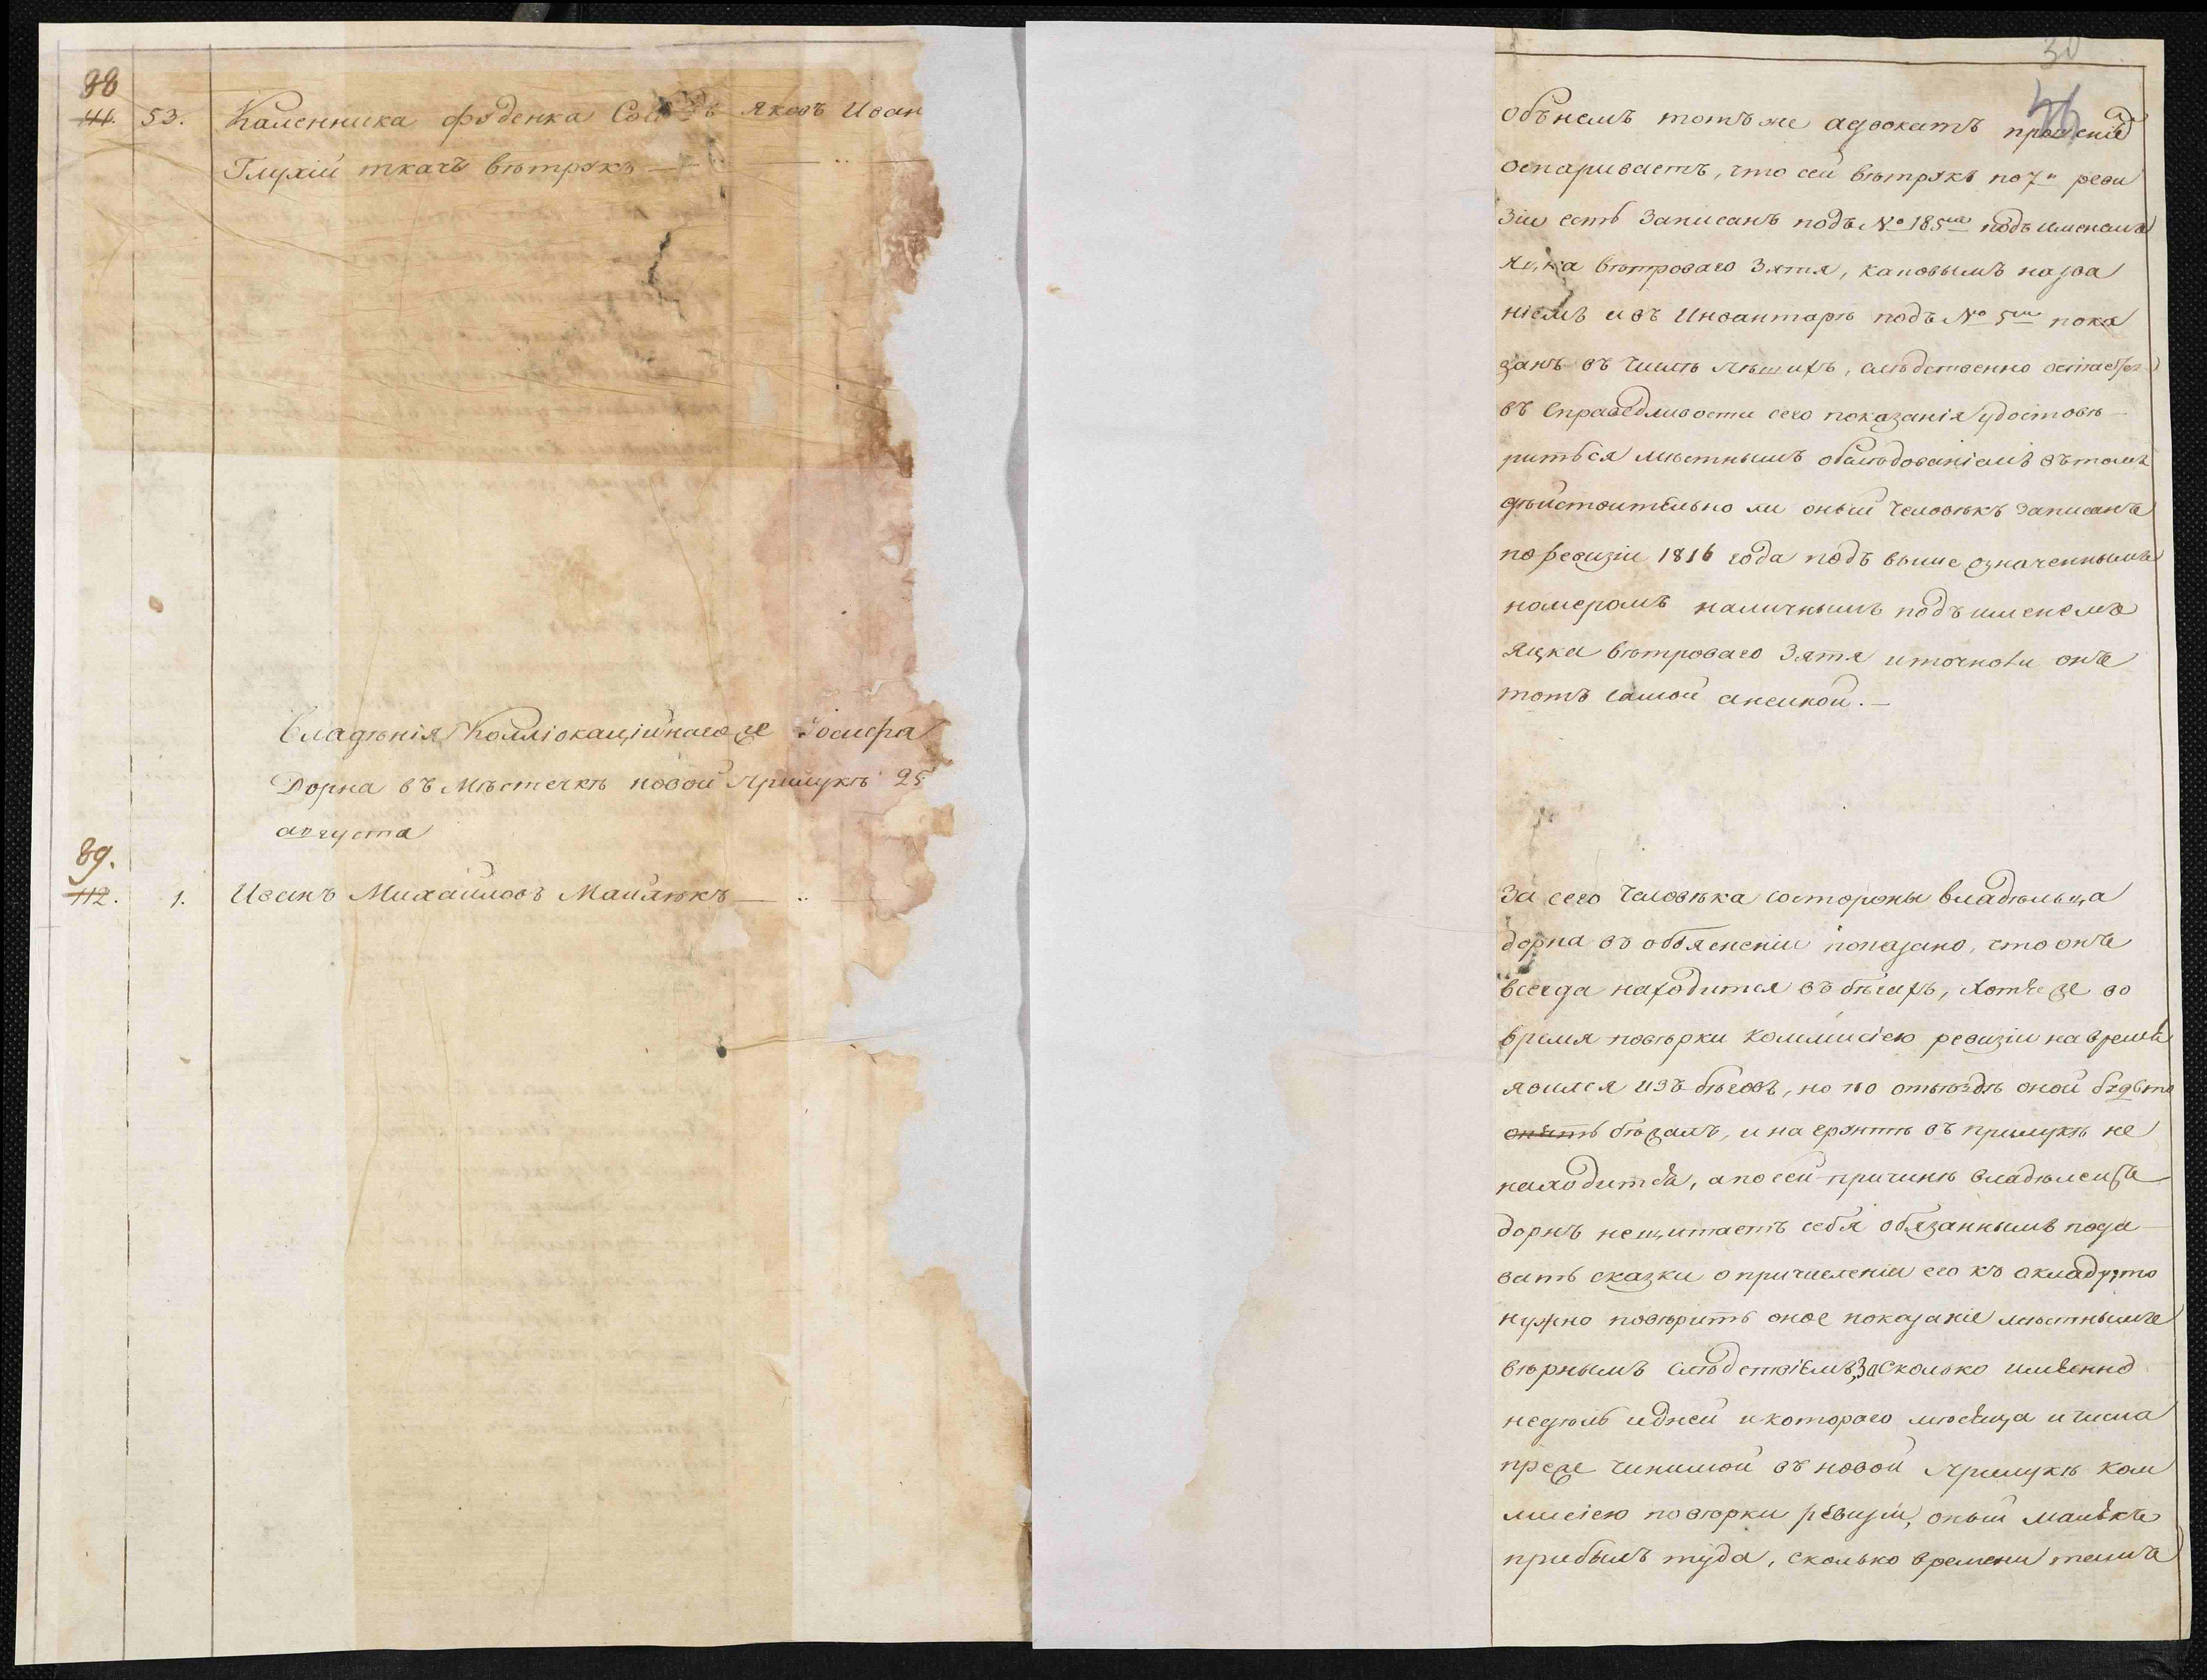 88
111. 53. Каленника фуденка Сосѣдъ Яковъ Иван
Глухій ткачъ вѣтрякъ — — " —
Владѣнія Коллiокаційнаго же Іосифа
Дорна въ мѣстечкѣ новой Прилукѣ 25
августа
89.
112. 1. Иванъ Михайловъ Маилюкъ — " —
30
46
объ немъ тотъ же адвокатъ прошеніе
оспариваетъ, что сей вѣтрякъ по 7й реви
зіи есть записанъ подъ № 185мъ подъ именемъ
Яцка вѣтроваго зятя, каковымъ назва
ніемъ и въ Инвентарѣ подъ № 5мъ пока
занъ въ числѣ пѣшихъ, слѣдственно остается
въ справедливости сего показанія удостовѣ
риться мѣстнымъ обслѣдованіемъ въ томъ
дѣйствительно ли оный человѣкъ записанъ
по ревизіи 1816 года подъ выше означеннымъ
номеромъ наличнымъ подъ именемъ
Яцка вѣтроваго зятя и точно ли онъ
тотъ самой а не иной. —
За сего человѣка со стороны владѣльца
дорна въ объясненіи показано, что онъ
всегда находится въ бѣгахъ, хотя же во
время повѣрки коммисіею ревизіи на время
явился изъ бѣговъ, но по отъѣздѣ оной будьто
опять бѣжалъ, и на грунтѣ въ прилукѣ не
находится, а по сей причинѣ владѣлецъ
дорнъ нещитаетъ себя обязаннымъ пода
вать сказки о причисленіи его къ окладу, то
нужно повѣрить оное показаніе мѣстнымъ
вѣрнымъ слѣдствіемъ, за сколько именно
недѣль и дней и котораго мѣсяца и числа
преже чинимой въ новой Прилукѣ ком
мисіею повѣрки ревизіи, оный маилюкъ
прибылъ туда, сколько времени тамъ